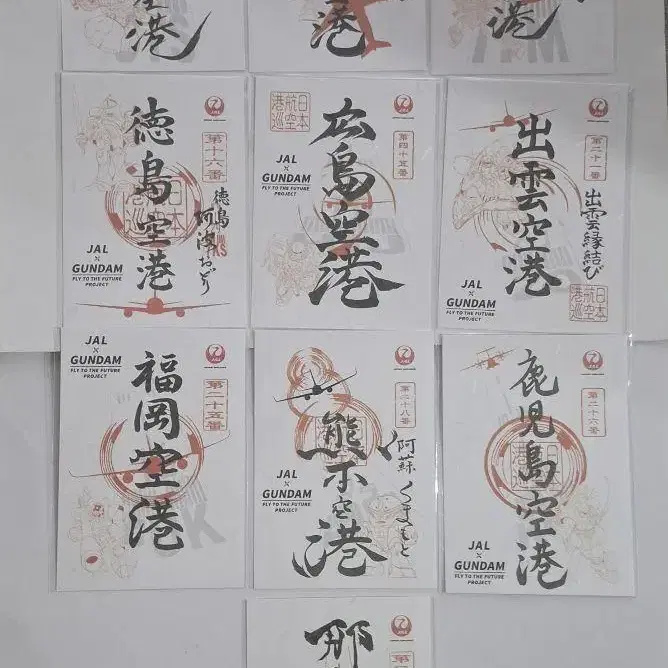 空港
空港
空港
徳島空港
JAL
第十六番
徳島
阿波おどり
JAL
×
GUNDAM
FLY TO THE FUTURE
PROJECT
日本
航空
港巡
広島空港
JAL
第四十五番
JAL
×
GUNDAM
FLY TO THE FUTURE
PROJECT
出雲空港
JAL
第二十一番
出雲縁結び
JAL
×
GUNDAM
FLY TO THE FUTURE
PROJECT
日本
航空
港巡
JAL
×
GUNDAM
FLY TO THE FUTURE
PROJECT
福岡空港
JAL
第二十五番
熊本空港
JAL
第二十八番
阿蘇くまもと
JAL
×
GUNDAM
FLY TO THE FUTURE
PROJECT
鹿児島空港
JAL
第二十六番
JAL
×
GUNDAM
FLY TO THE FUTURE
PROJECT
那
JAL